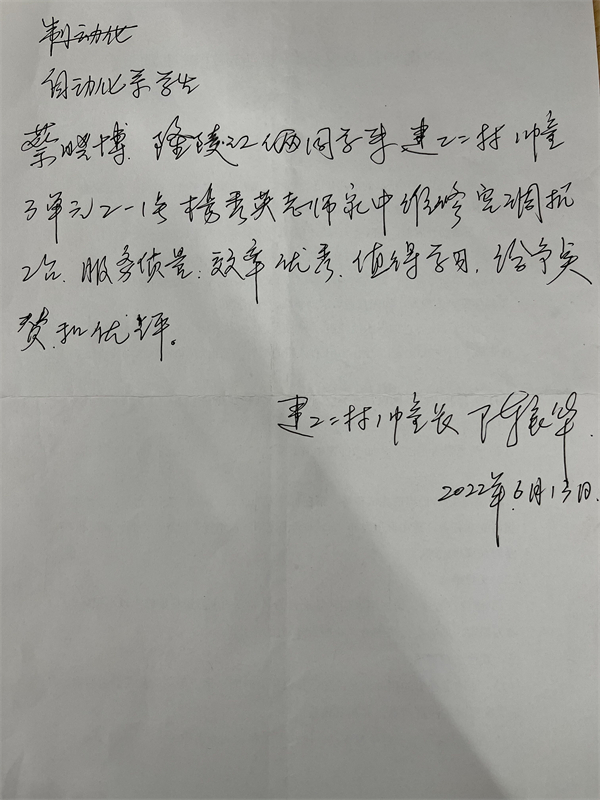 制动化
自动化系学生
蔡晓博、陵江俩同学来建工二村八幢
3单元2-1号杨秀英老师家中维修空调机
2台、服务质量、效率优秀、值得学习、给予奖
赞和优评。
建工二村八幢长
2022年6月13日.